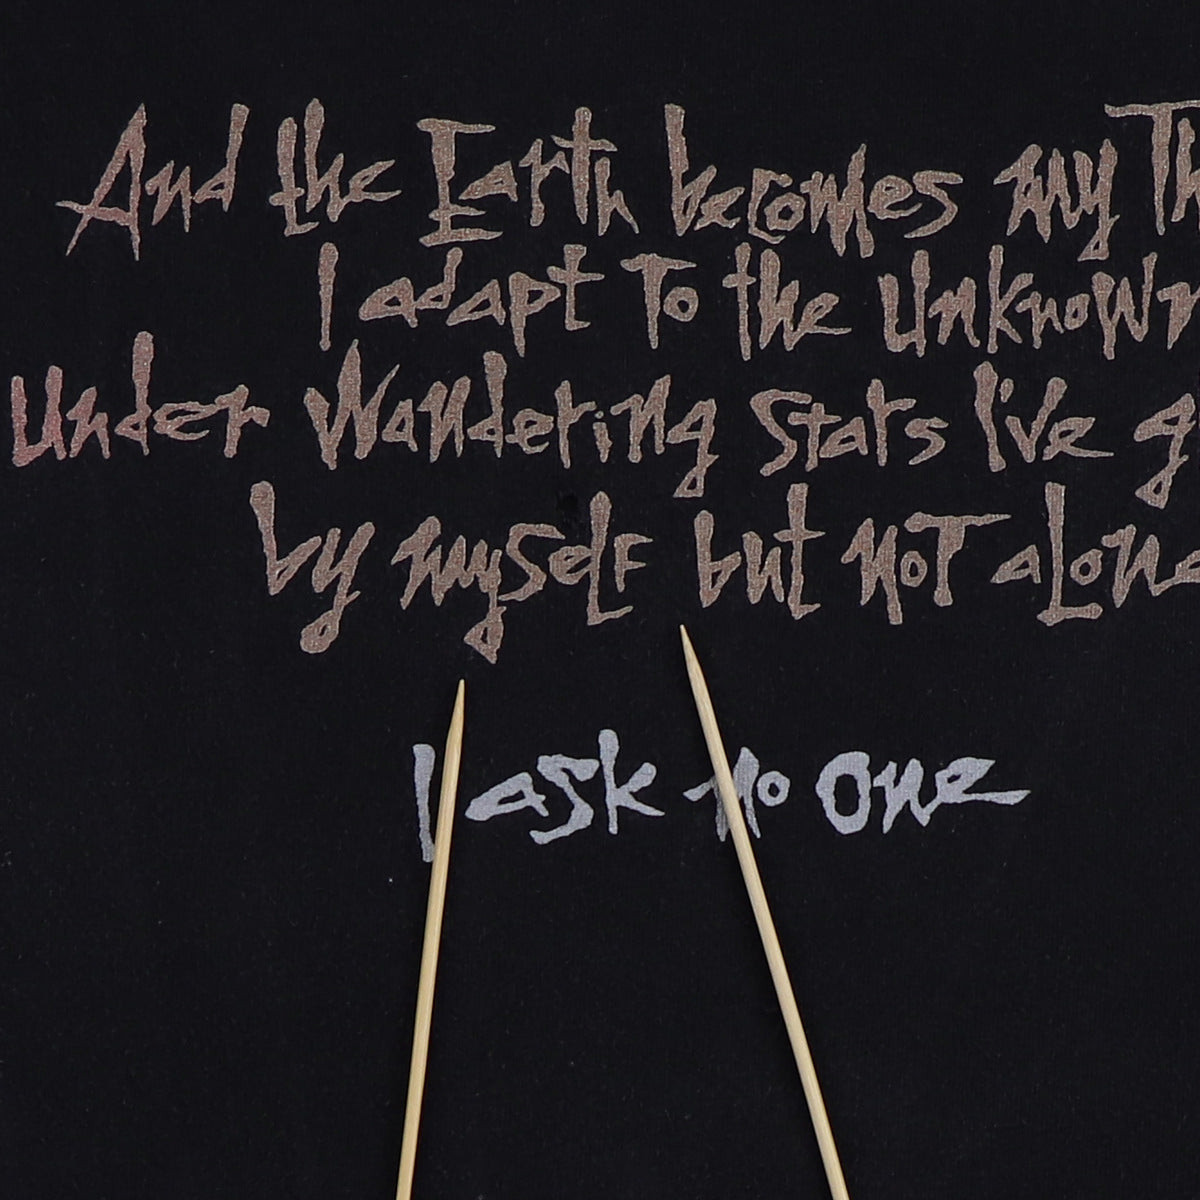 And the Earth becomes my Th
I adapt To the Unknown
Under Wandering Stars I've g
by myself but noT alone
I ask no One